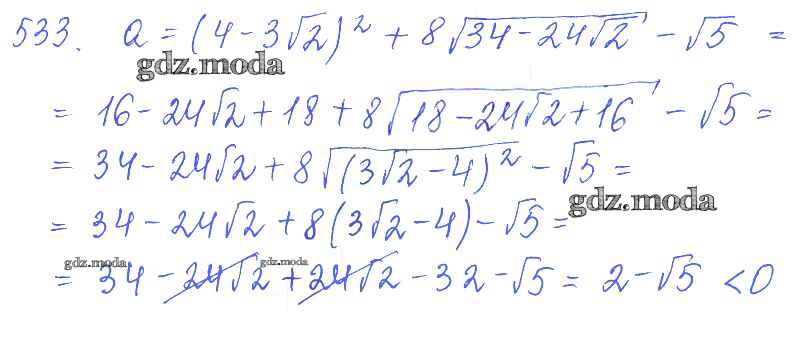 533. a = (4 - 3√2)² + 8√(34 - 24√2) - √5 =
gdz.moda
= 16 - 24√2 + 18 + 8√(18 - 24√2 + 16) - √5 =
= 34 - 24√2 + 8√((3√2 - 4)²) - √5 =
= 34 - 24√2 + 8(3√2 - 4) - √5 =
gdz.moda
gdz.moda gdz.moda
= 34 - 24√2 + 24√2 - 32 - √5 = 2 - √5 < 0